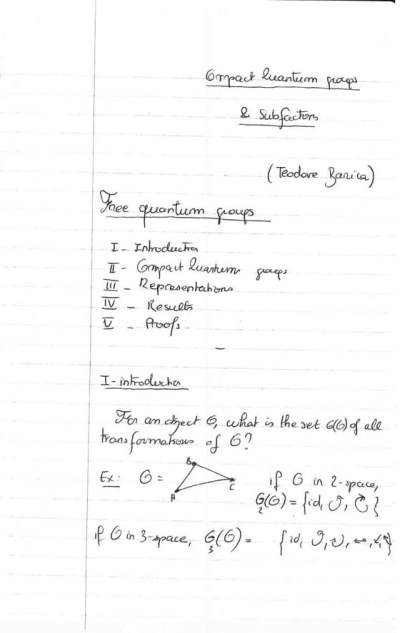 Compact Quantum groups
& Subfactors
(Teodore Banica)
Free quantum groups
I - Introduction
II - Compact Quantum groups
III - Representations
IV - Results
V - Proofs.
I - introduction
For an object O, what is the set G(O) of all
transformations of O?
Ex: O = A B C if O in 2-space,
G₂(O) = {id, ↺, ↻}
if O in 3-space, G₃(O) = {id, ↺, ↻, ↔, ↙, ↖}